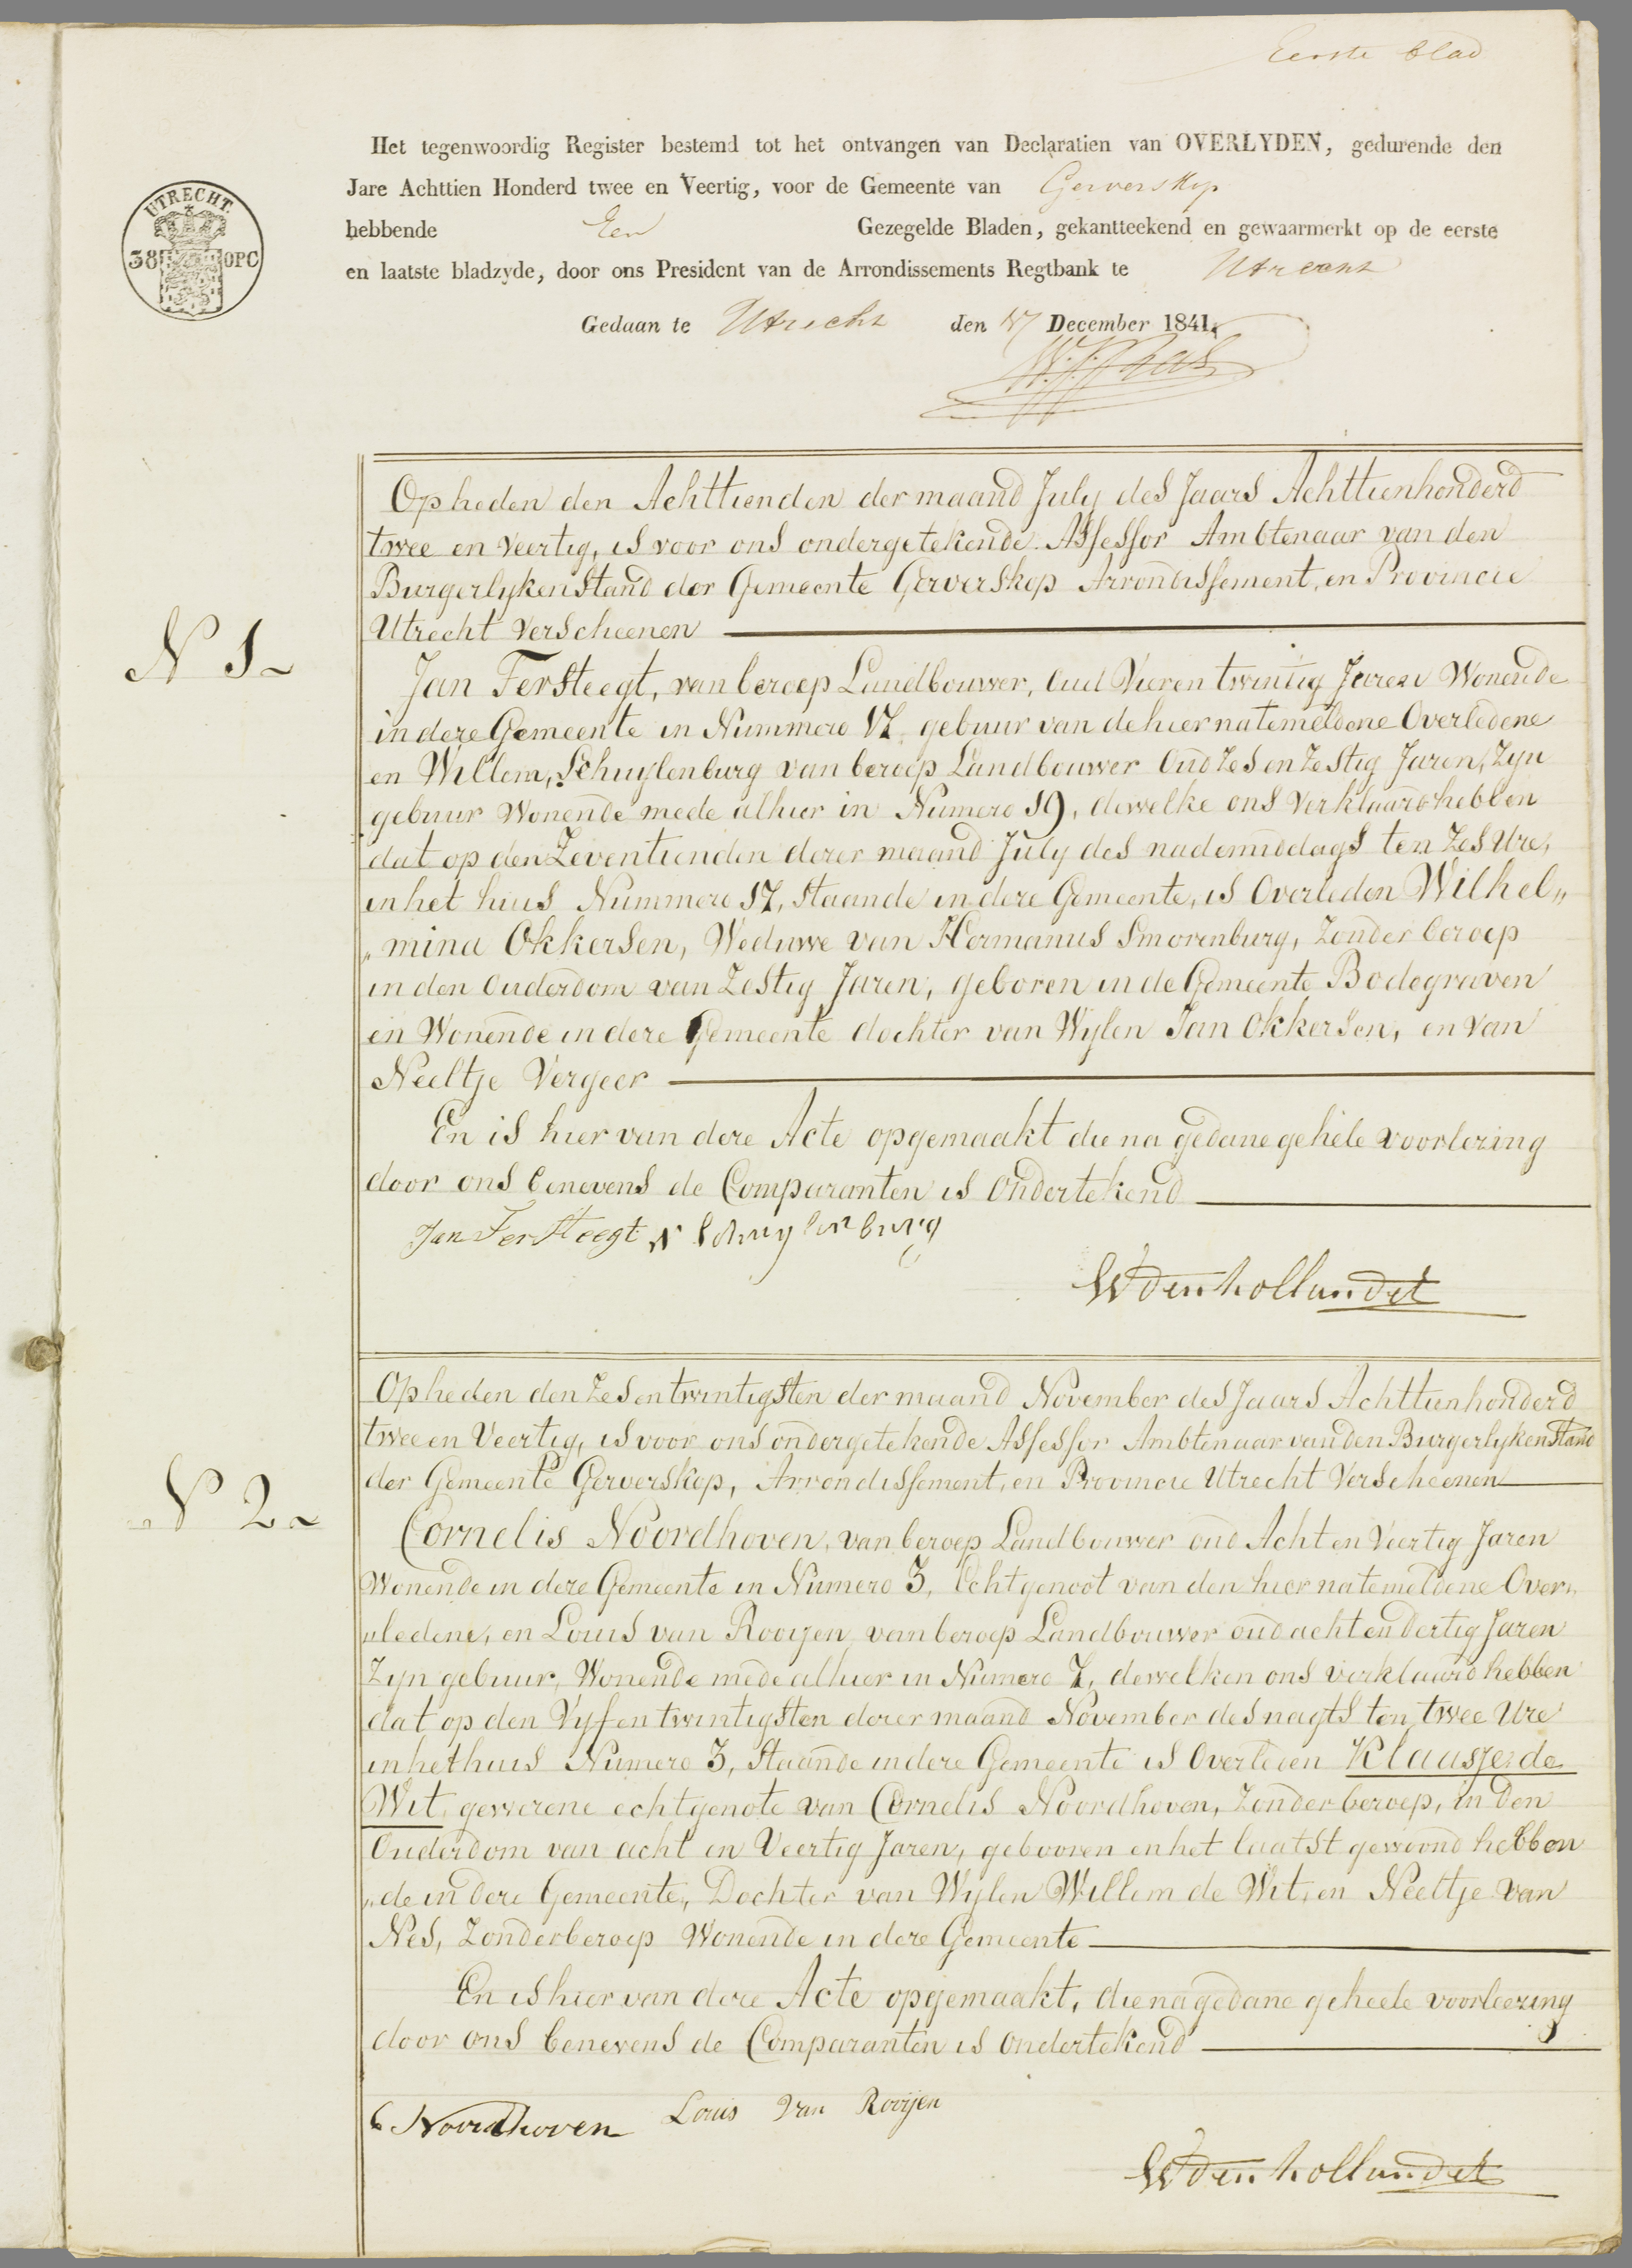 Eerste blad
Het tegenwoordig Register bestemd tot het ontvangen van Declaratien van OVERLYDEN, gedurende den
Jare Achttien Honderd twee en Veertig, voor de Gemeente van Gerverskop
UTRECHT.
38 OPC
hebbende Een Gezegelde Bladen, gekantteekend en gewaarmerkt op de eerste
en laatste bladzyde, door ons President van de Arrondissements Regtbank te Utrecht
Gedaan te Utrecht den 17 December 1841.
Op heden den Achttienden der maand July des Jaars Achttienhonderd
twee en veertig, is voor ons ondergetekende Assessor Ambtenaar van den
Burgerlyken Stand der Gemeente Gerverskop Arrondissement, en Provincie
Utrecht Verscheenen
N 1
Jan Fersteegt, van beroep Landbouwer, Oud Vieren twintig Jaren Wonende
in deze Gemeente in Nummero 17, gebuur van de hier natemeldene Overledene
en Willem, Schuylenburg van beroep Landbouwer Oud Zes en Zestig Jaren, Zyn
gebuur Wonende mede alhier in Numero 19, dewelke ons Verklaard hebben
dat op den Zeventienden dezer maand July des nademiddags ten Zes Ure,
in het huis Nummero 17, Staande in deze Gemeente, is Overleden Wilhel„
„mina Okkersen, Weduwe van Hermanus Smorenburg, Zonder beroep
in den Ouderdom van Zestig Jaren, geboren in de Gemeente Bodegraven
en Wonende in deze Gemeente dochter van Wylen Jan Okkersen, en van
Neeltje Vergeer
En is hier van deze Acte opgemaakt die na gedane gehele voorlezing
door ons benevens de Comparanten is Ondertekend
Jan Fersteegt W Schuylenburg
W den hollander
Op heden den Zes en twintigsten der maand November des Jaars Achttienhonderd
twee en Veertig, is voor ons ondergetekende Assessor Ambtenaar van den Burgerlyken Stand
der Gemeente Gerverskop, Arrondissement, en Provincie Utrecht Verscheenen
N 2
Cornelis Noordhoven, van beroep Landbouwer oud Acht en Veertig Jaren
Wonende in deze Gemeente in Numero 3, Echtgenoot van den hier natemeldene Over„
„ledene, en Louis van Rooyen, van beroep Landbouwer oud acht en dertig Jaren
Zyn gebuur, Wonende mede alhier in Numero 7, dewelken ons verklaard hebben
dat op den Vyf en twintigsten dezer maand November des nagts ten twee Ure
in het huis Numero 3, Staande in deze Gemeente is Overleden Klaasje de
Wit, gewezene echtgenote van Cornelis Noordhoven, Zonder beroep, in den
Ouderdom van acht en Veertig Jaren, gebooren en het laatst gewoond hebben
„de in deze Gemeente, Dochter van Wylen Willem de Wit, en Neeltje van
Nes, Zonderberoep Wonende in deze Gemeente
En is hier van deze Acte opgemaakt, die na gedane geheele voorleezing
door ons benevens de Comparanten is Ondertekend
C Noordhoven Louis Van Rooijen
W den hollander